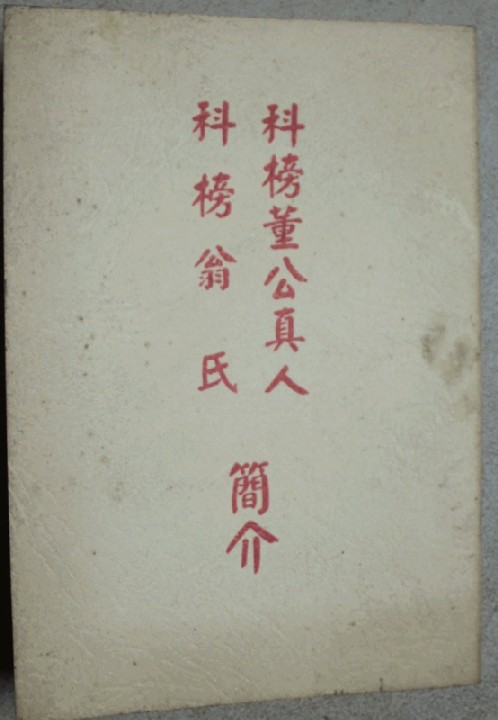 科榜董公真人
科榜翁氏
簡介